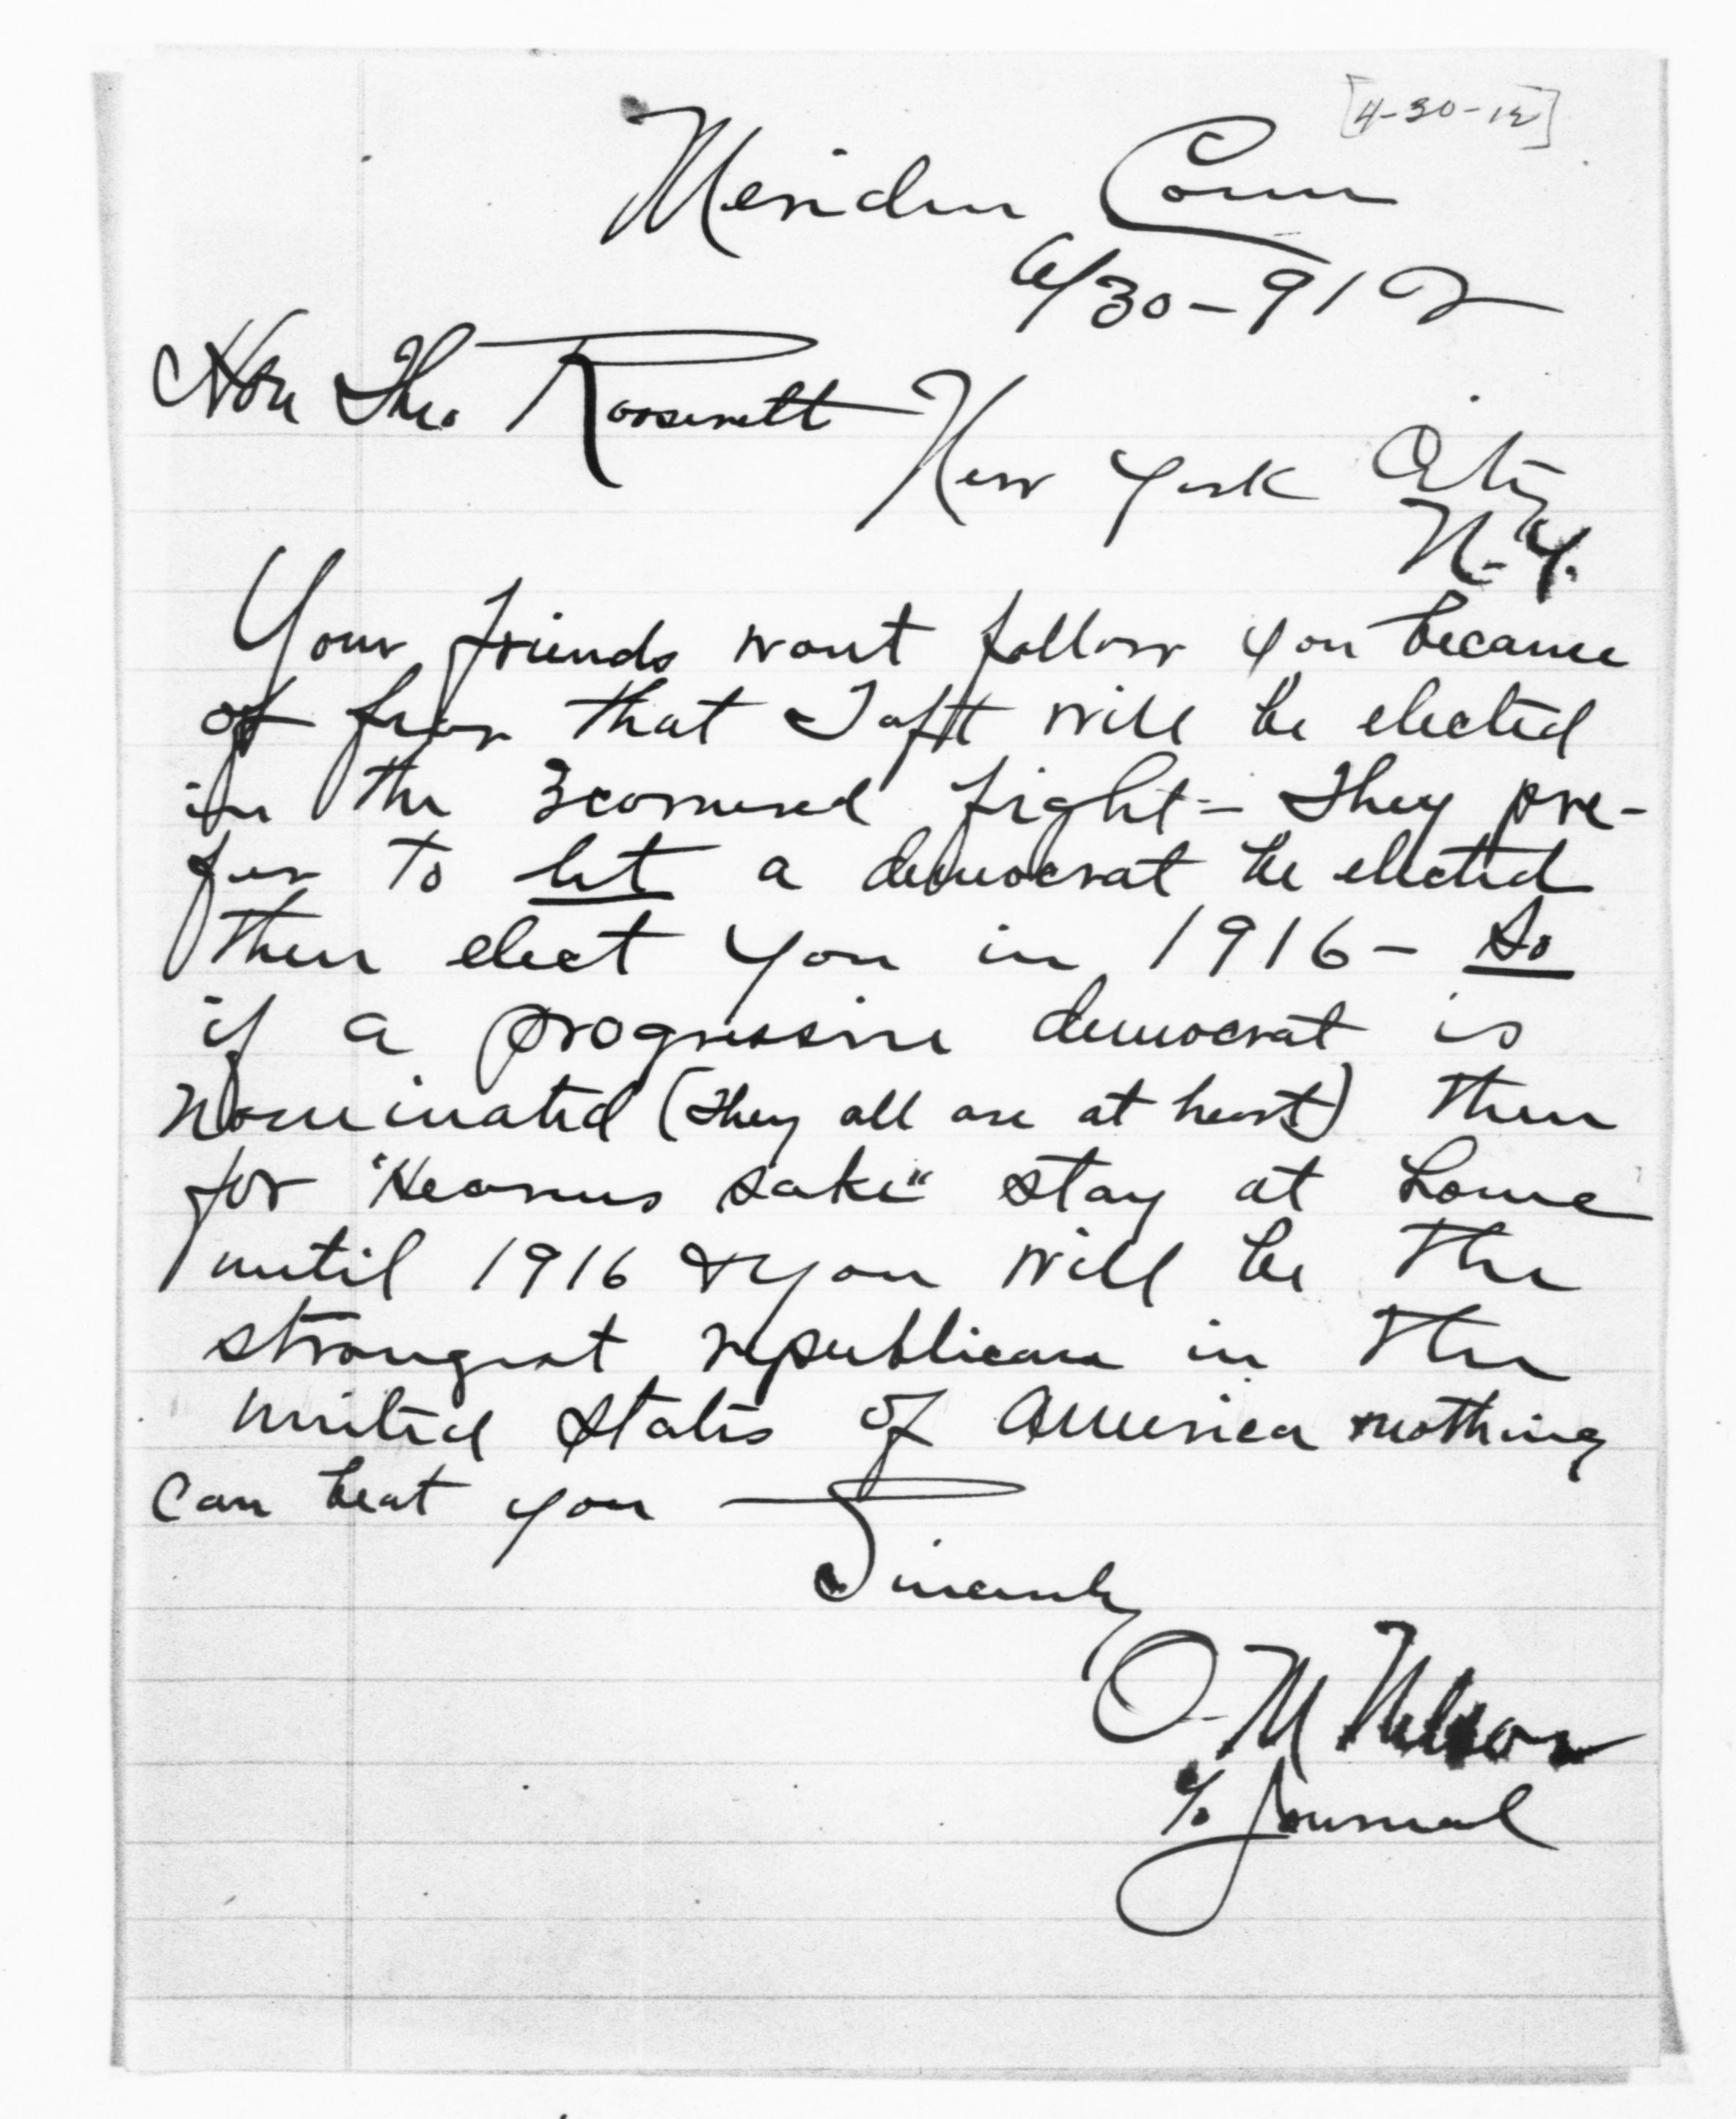 [4-30-12]
Meriden Conn
6/30-912
Hon Theo Roosevelt
New York City
N.Y.
Your friends wont follow you because
of fear that Taft will be elected
in the 3cornered fight - They pre-
fer to let a democrat be elected
then elect you in 1916 - So
if a progressive democrat is
nominated (they all are at heart) then
for "Heavens sake" stay at home
until 1916 & you will be the
strongest republican in the
united States of America nothing
can beat you
Sincerely
O. M Nelson
c/o Journal